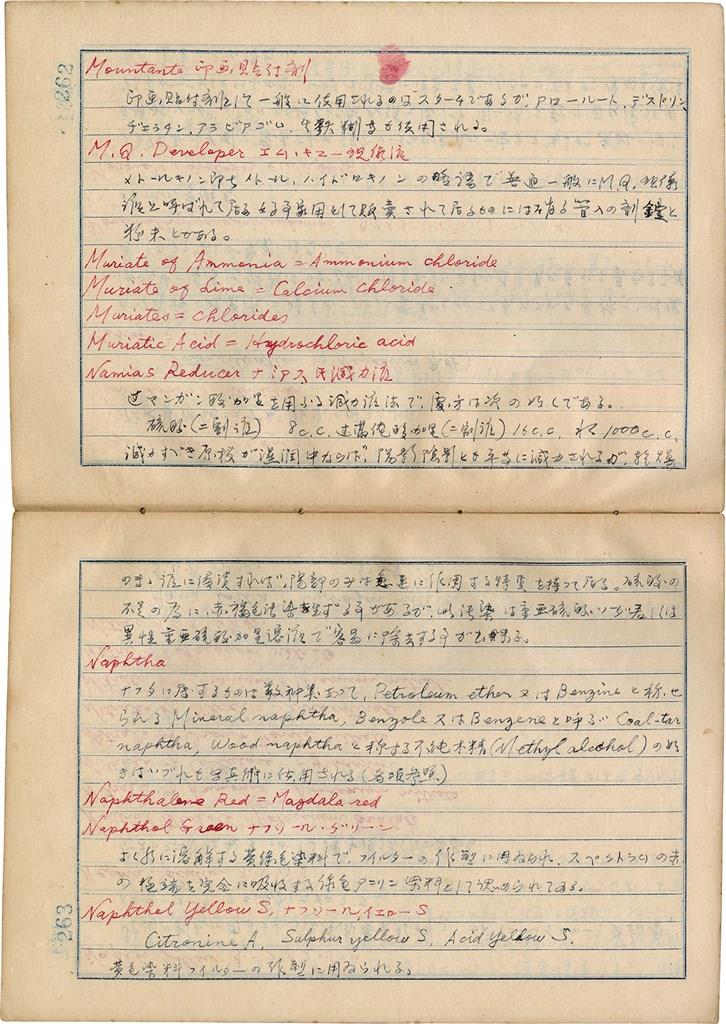 262
Mountants 印画貼付剤
印画貼付剤として一般に使用されるのはスターチであるが, アロールート, デストリン,
ゼラチン, アラビアゴム, 糊等が使用される。
M.Q. Developer エム・キュー現像液
メトールキノン即ちメトール, ハイドロキノンの略語で普通一般にM.Q.現像
液と呼ばれて居る 用として販売されて居るものには 管入の剤錠と
粉末とがある。
Muriate of Ammonia = Ammonium chloride
Muriate of Lime = Calcium Chloride
Muriates = chlorides
Muriatic Acid = Hydrochloric acid
Namias Reducer ナミアス氏減力液
過マンガン酸加里を用ふる減力液法で, 処方は次の如くである。
硫酸(二割液) 8c.c. 過満俺酸加里(二割液) 16c.c. 水 1000c.c.
減力すべき原板が湿潤中ならば, 陽影陰影とも平等に減力されるが, 乾燥
のまゝ液に浸漬すれば, 陰部のみは急速に作用する特質を持って居る。硫酸の
不足の為に赤褐色汚染を生ずる事があるが, 此汚染は重亜硫酸ソーダ若しくは
異性重亜硫酸加里溶液で容易に除去する事が出来る。
Naphtha
ナフタに属するものは数種類あって, Petroleum ether 又は Benzine と称せ
られる Mineral naphtha, Benzole 又は Benzene と呼ぶ Coal-tar
naphtha, Wood naphtha と称する不純木精(Methyl alcohol)の如
きはいづれも写真術に使用される(各項参照)
Naphthalene Red = Magdala red
Naphthol Green ナフソール・グリーン
よく水に溶解する黄緑色染料で, フィルターの作製に用ゐられ, スペクトラムの赤
の極端を完全に吸收する緑色アニリン染料として認められてゐる。
Naphthol Yellow S. ナフソール, イエローS
Citronine A, Sulphur yellow S, Acid Yellow S.
黄色染料フィルターの作製に用ゐられる。
263